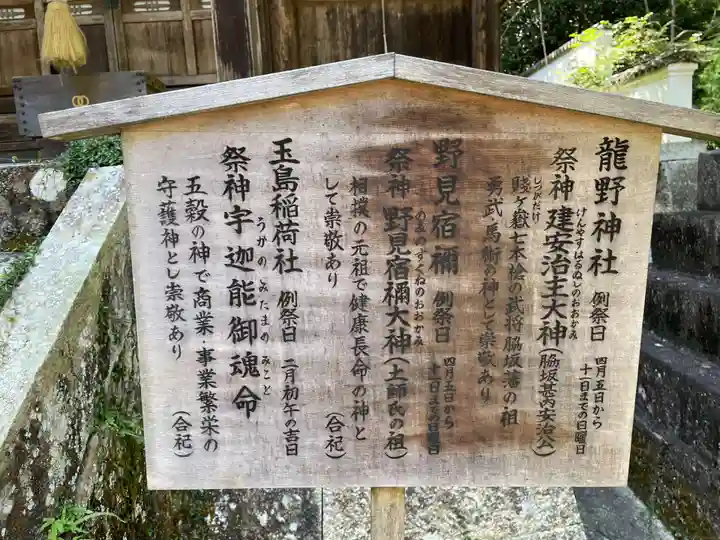 龍野神社 例祭日 四月五日から十一日までの日曜日
祭神 建安治主大神(脇坂甚内安治公)
けんやすはるぬしのおおかみ
賤ヶ嶽七本槍の武将脇坂藩の祖
しづがたけ
勇武、馬術の神として崇敬あり
野見宿禰 例祭日 四月五日から十一日までの日曜日
祭神 野見宿禰大神(土師氏の祖)
のみのすくねのおおかみ
相撲の元祖で健康長命の神と
して崇敬あり (合祀)
玉島稲荷社 例祭日 二月初午の吉日
祭神 宇迦能御魂命
うかのみたまのみこと
五穀の神で商業・事業繁栄の
守護神とし崇敬あり (合祀)